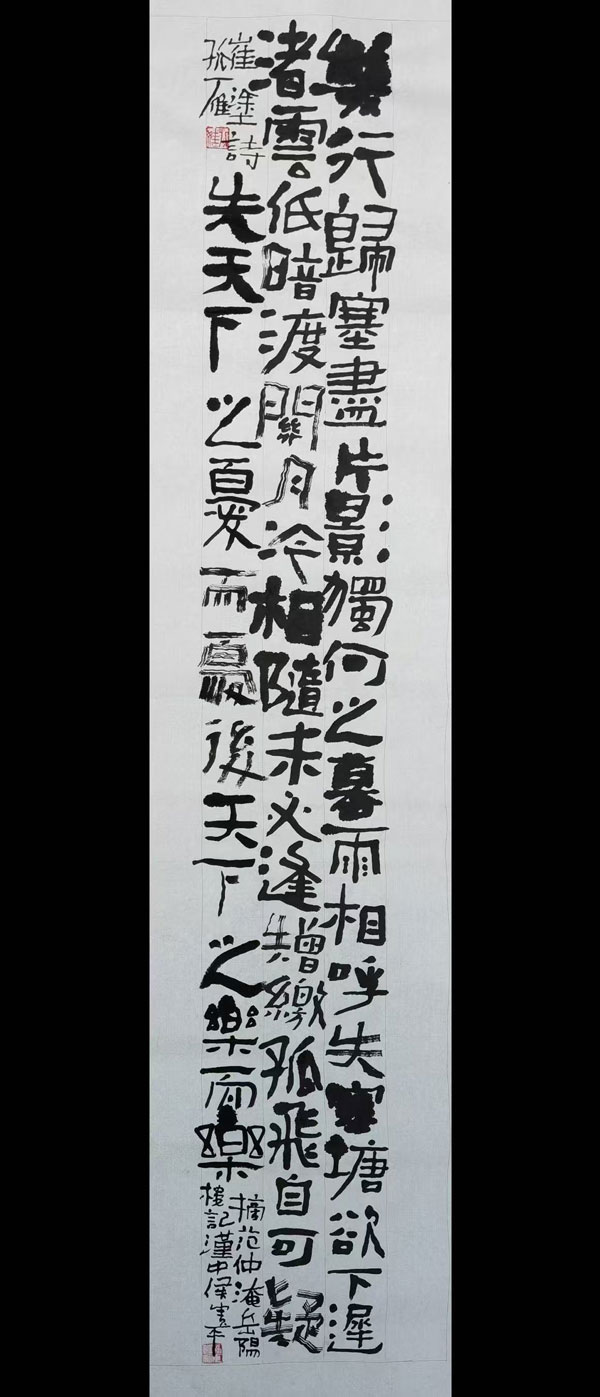 幾行歸塞盡片影獨何之暮雨相呼失寒塘欲下遲
渚雲低暗渡關月冷相隨未必逢矰繳孤飛自可疑
崔塗詩
孤雁
先天下之憂而憂後天下之樂而樂
摘范仲淹岳陽
樓記漢中侯平